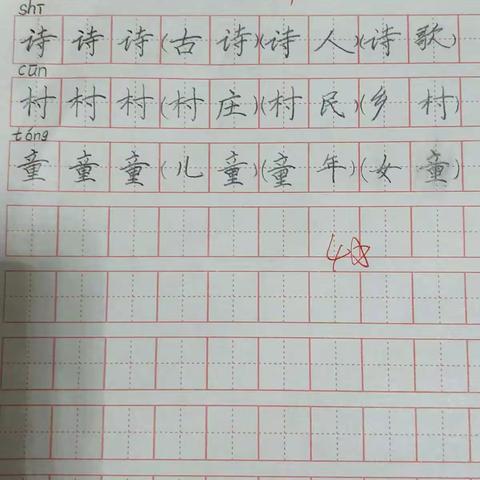 shī
诗诗诗(古诗)(诗人)(诗歌)
cūn
村村村(村庄)(村民)(乡村)
tóng
童童童(儿童)(童年)(女童)
4☆